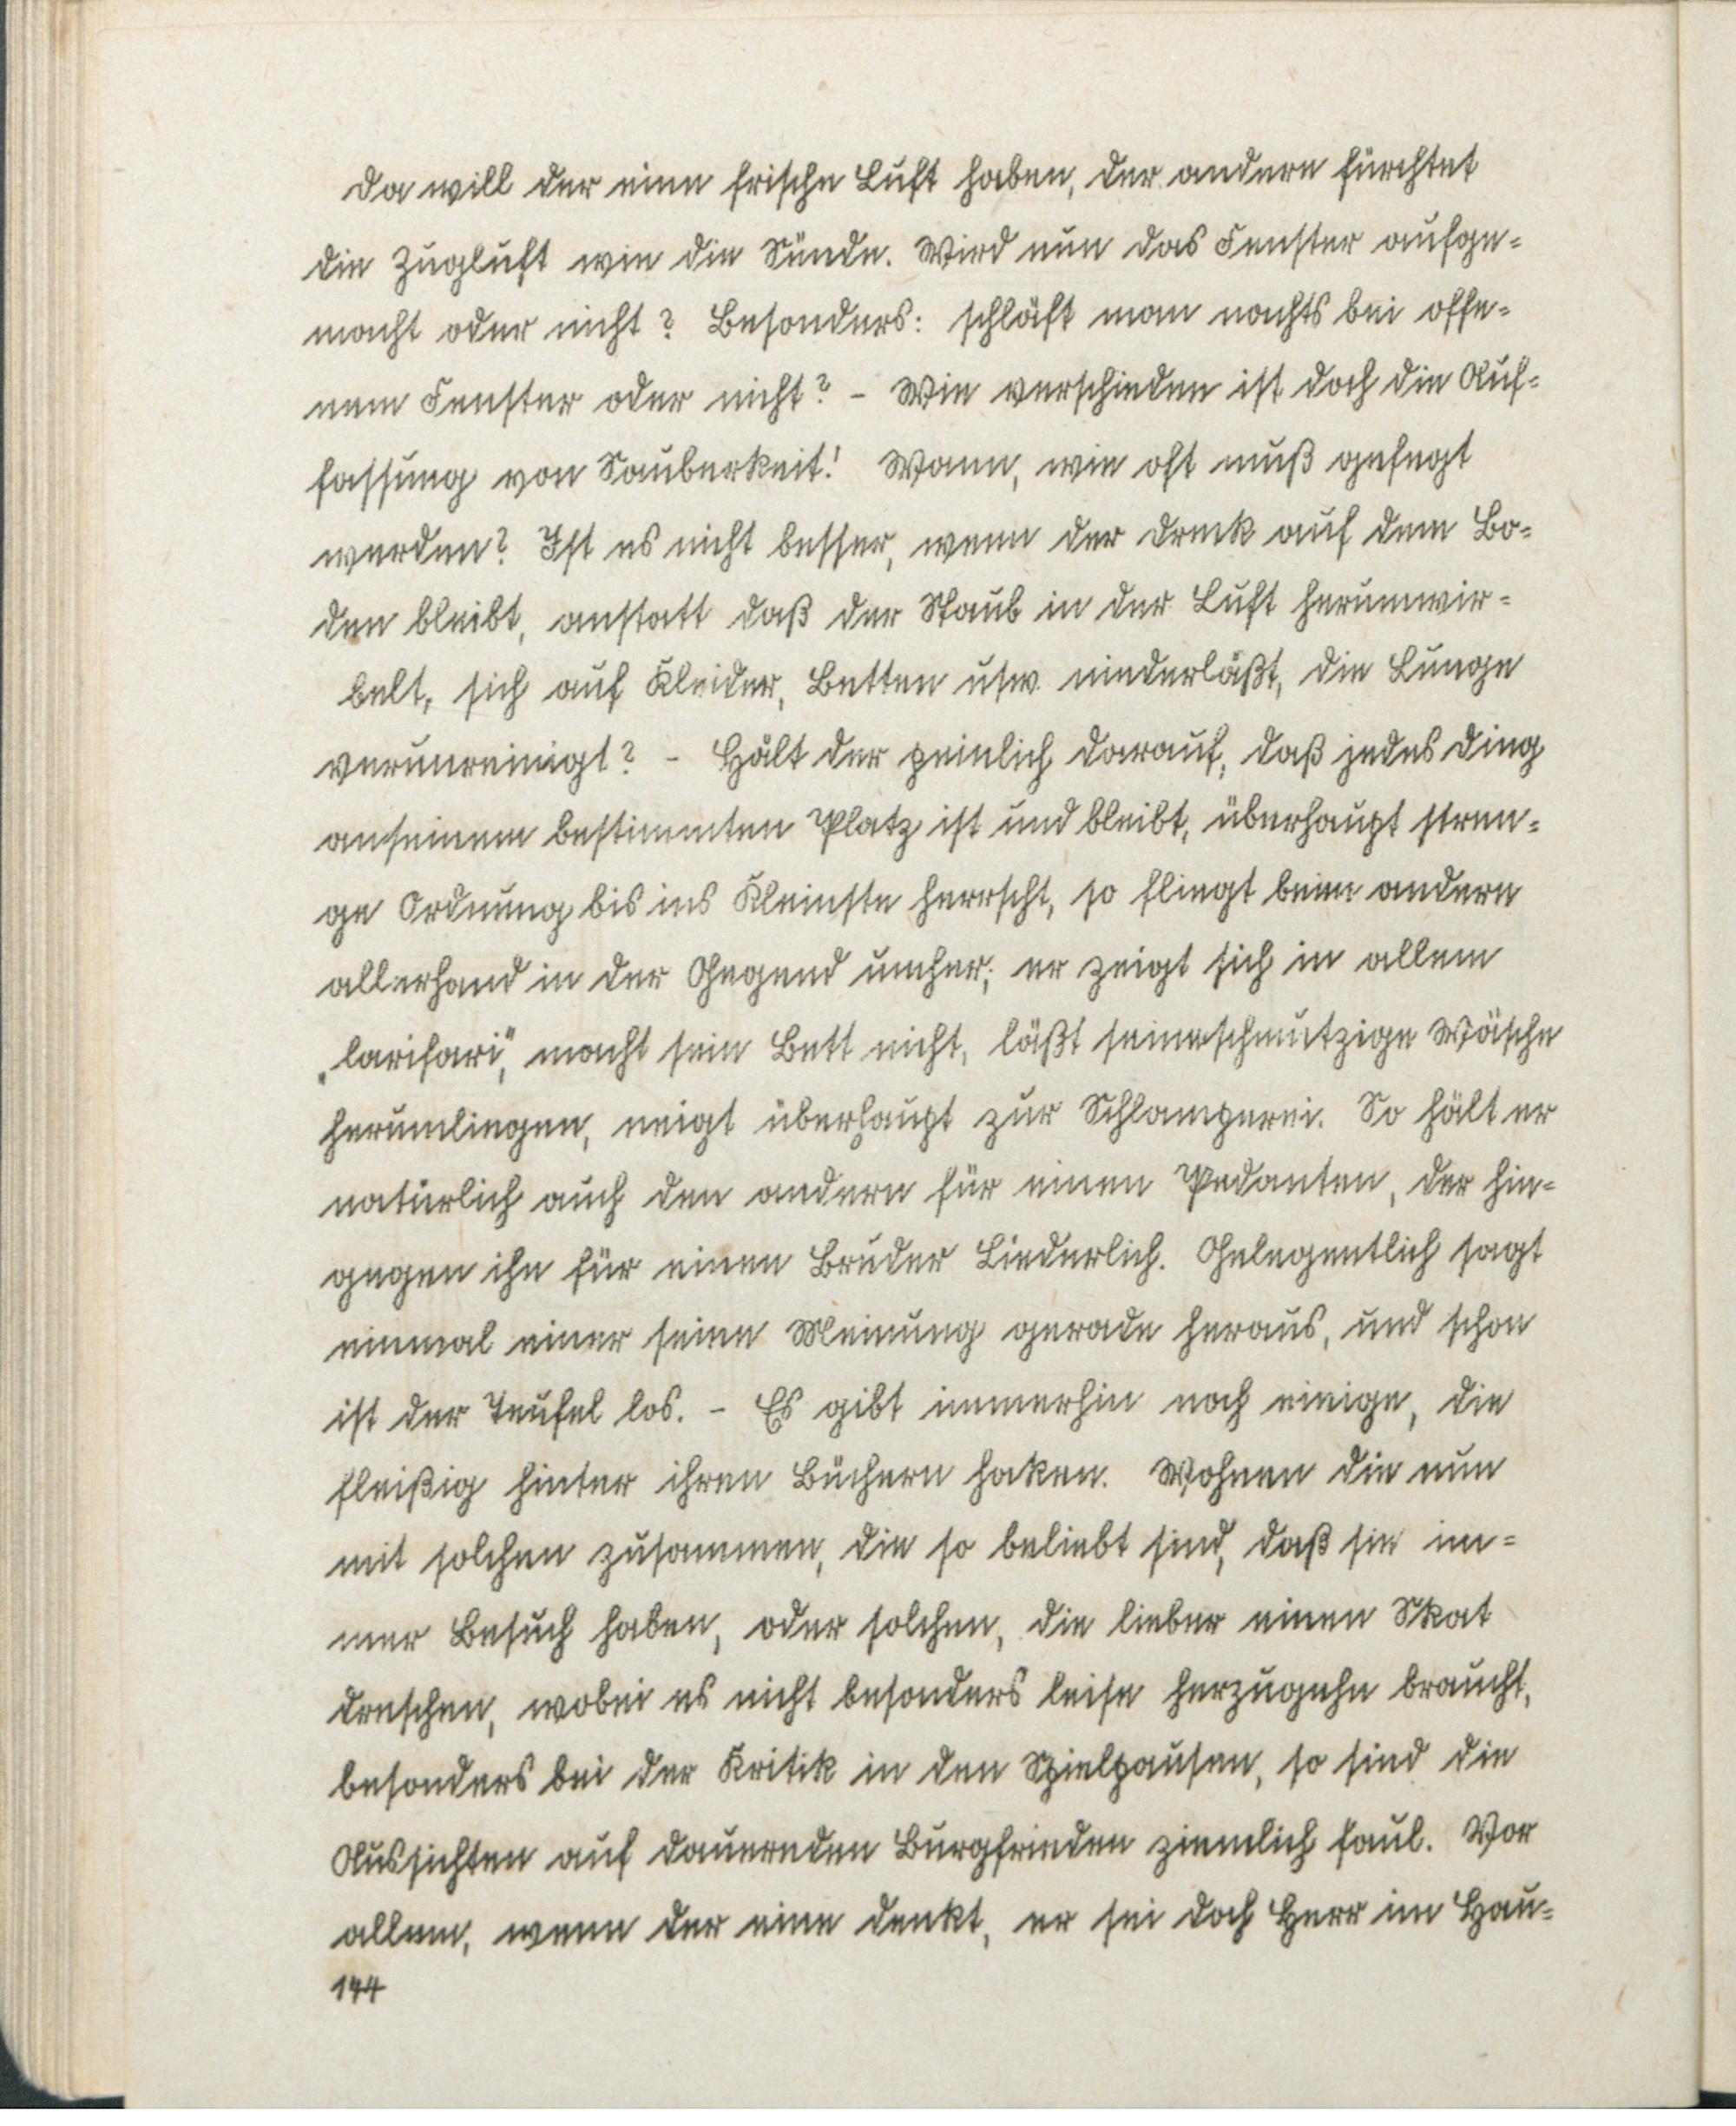 Da will der eine frische Luft haben, der andere fürchtet
die Zugluft wie die Sünde. Wird nun das Fenster aufge-
macht oder nicht? Besonders: schläft man nachts bei offe-
nem Fenster oder nicht? - Wie verschieden ist doch die Auf-
fassung von Sauberkeit! Wann, wie oft muß gefegt
werden? Ist es nicht besser, wenn der Dreck auf dem Bo-
den bleibt, anstatt daß der Staub in der Luft herumwir-
belt, sich auf Kleider, Betten usw. niederläßt, die Lunge
verunreinigt? - Hält der peinlich darauf, daß jedes Ding
an seinem bestimmten Platz ist und bleibt, überhaupt stren-
ge Ordnung bis ins Kleinste herrscht, so fliegt beim andern
allerhand in der Gegend umher; er zeigt sich in allem
„larifari“, macht sein Bett nicht, läßt seine schmutzige Wäsche
herumliegen, neigt überhaupt zur Schlamperei. So hält er
natürlich auch den andern für einen Pedanten, der hin-
gegen ihn für einen Bruder Liederlich. Gelegentlich sagt
einmal einer seine Meinung gerade heraus, und schon
ist der Teufel los. - Es gibt immerhin noch einige, die
fleißig hinter ihren Büchern haken. Wohnen die nun
mit solchen zusammen, die so beliebt sind, daß sie im-
mer Besuch haben, oder solchen, die lieber einen Skat
dreschen, wobei es nicht besonders leise herzugehn braucht,
besonders bei der Kritik in den Spielpausen, so sind die
Aussichten auf dauernden Burgfrieden ziemlich faul. Vor
allem, wenn der eine denkt, er sei doch Herr im Hau-
144